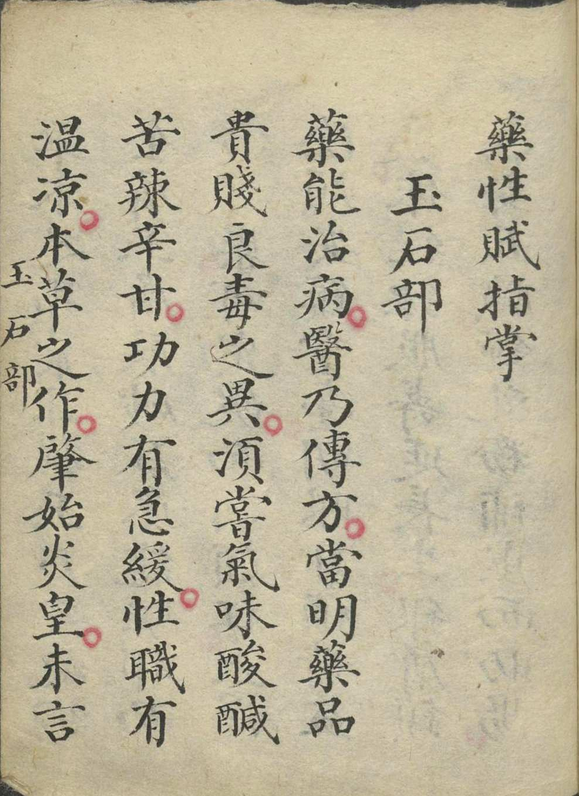 藥性賦指掌
玉石部
藥能治病。醫乃傳方。當明藥品
貴賤良毒之異。須嘗氣味酸鹹
苦辣辛甘。功力有急緩。性職有
温凉。本草之作。肇始炎皇。未言
玉石部